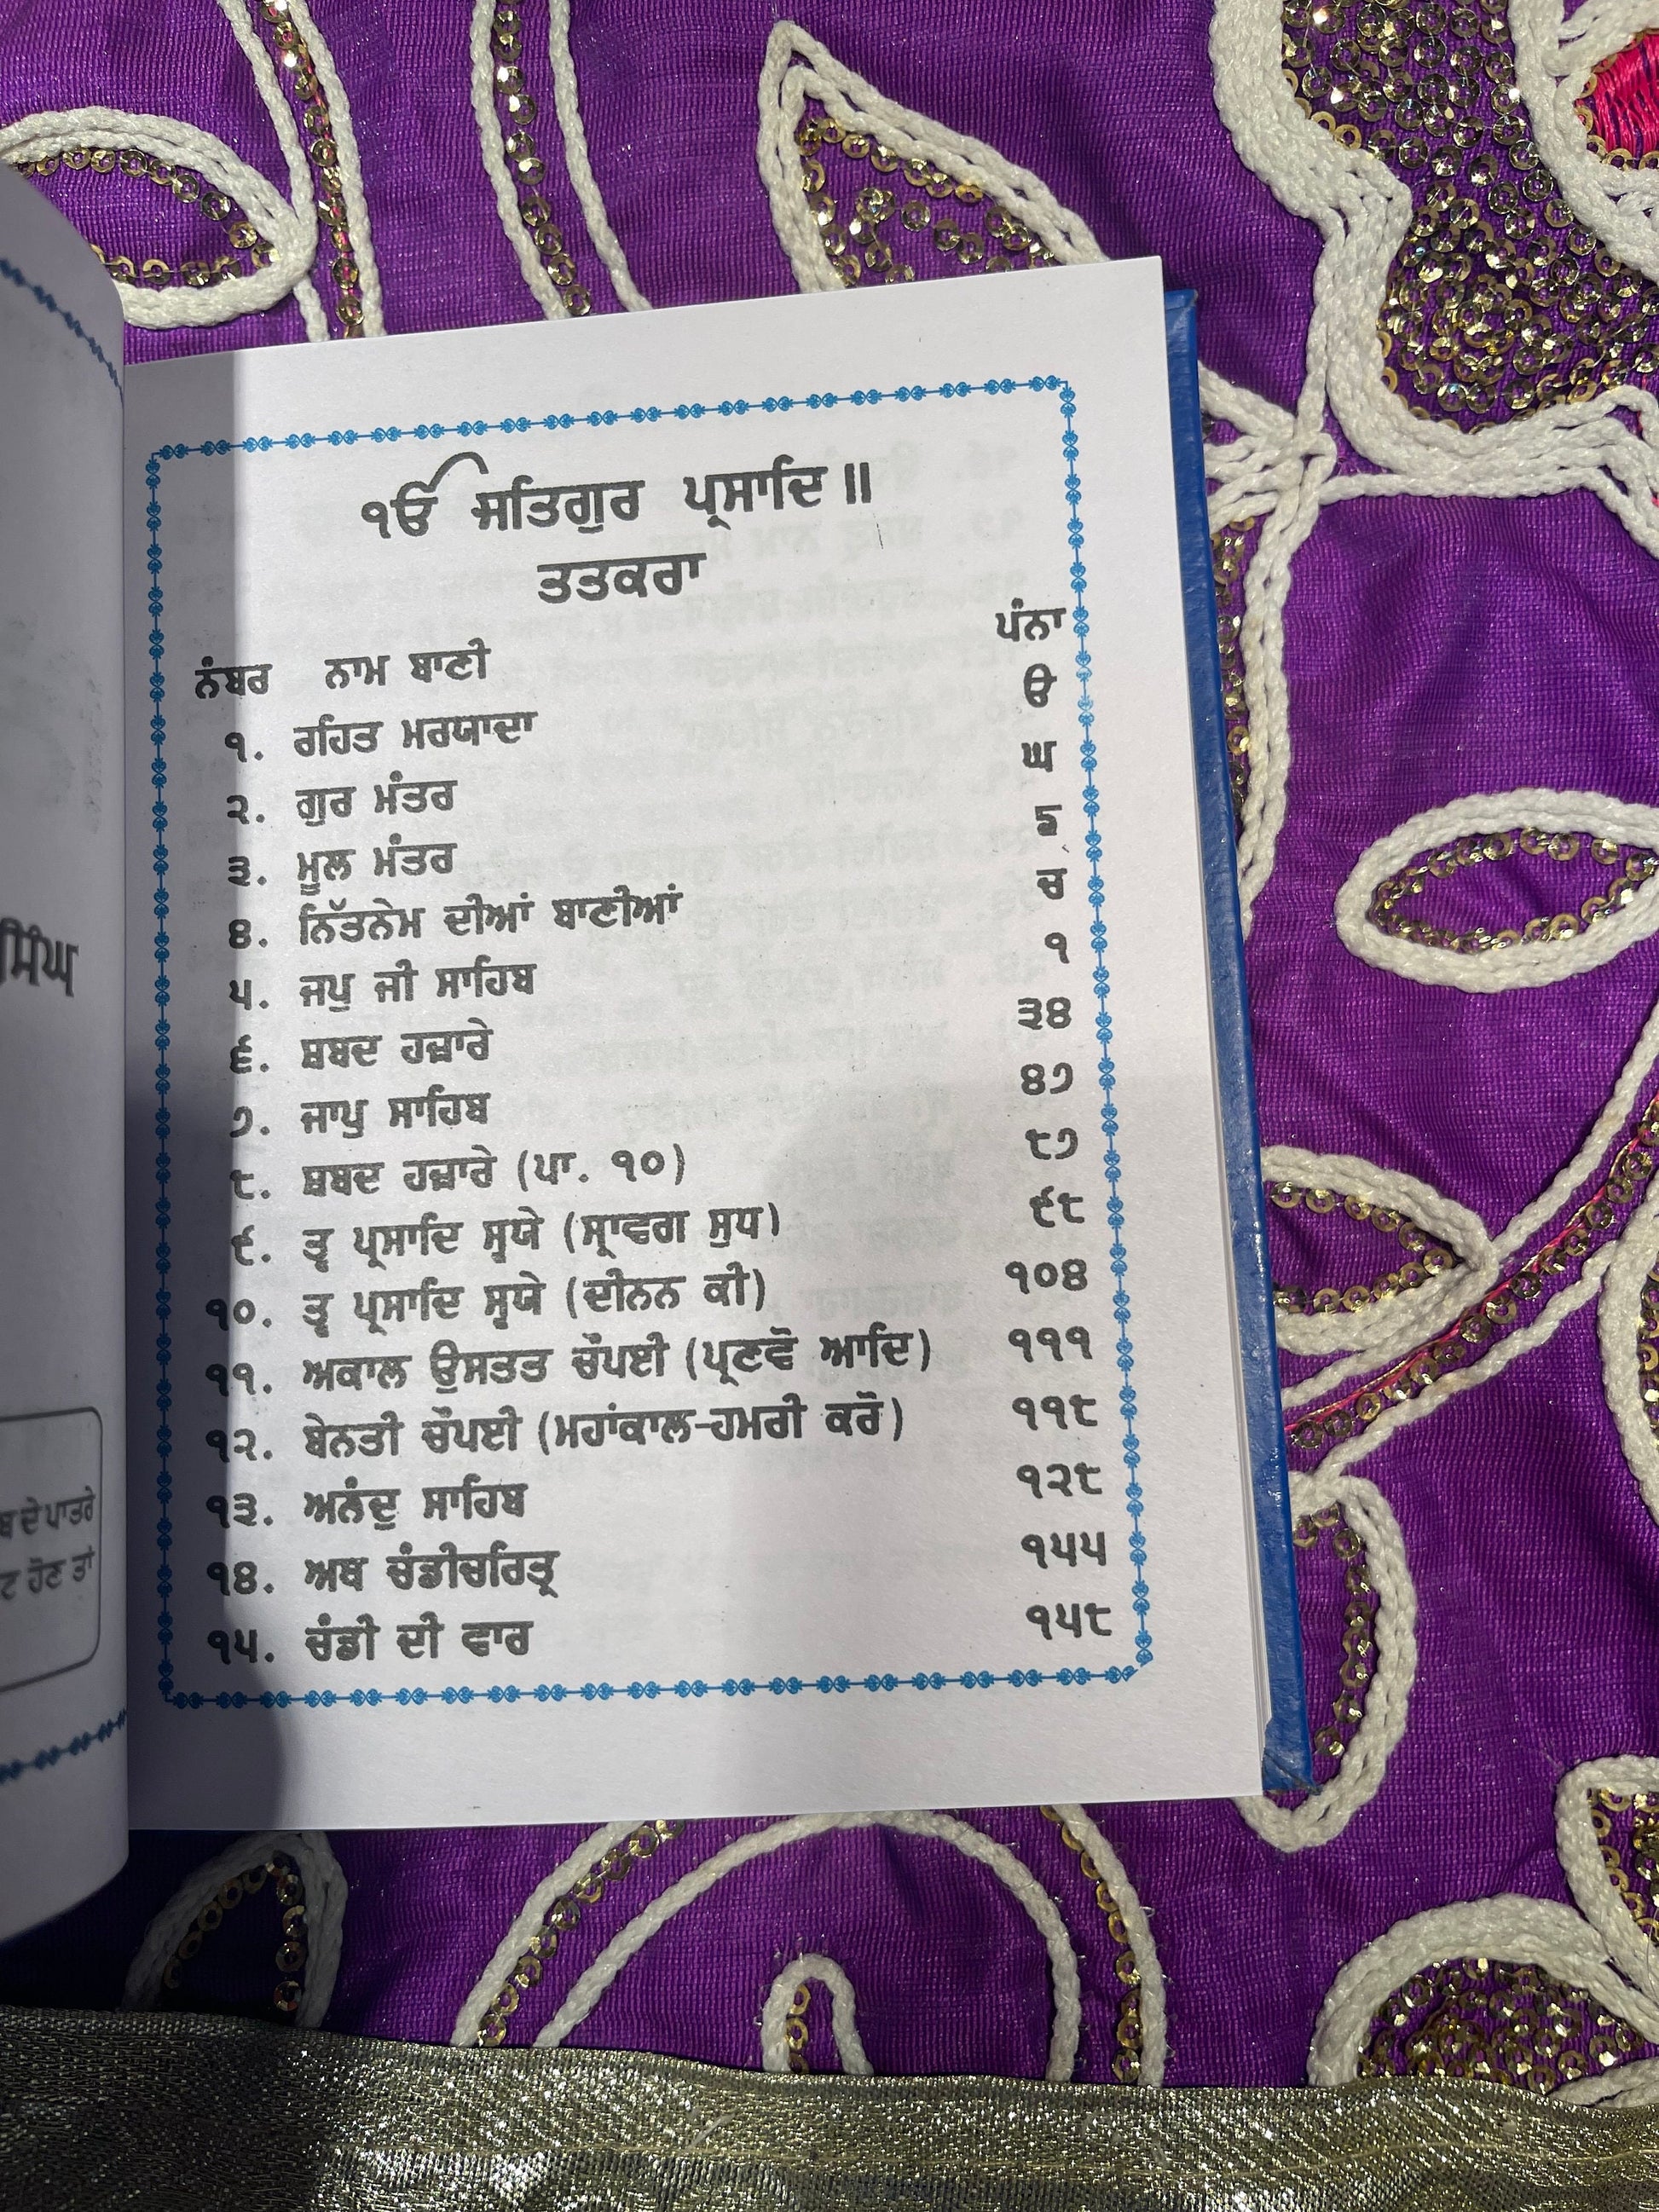 ਸਿੰਘ
ਬ ਦੇ ਪਾਤਰੇ
ਟ ਹੋਣ ਤਾਂ
ੴ ਸਤਿਗੁਰ ਪ੍ਰਸਾਦਿ॥
ਤਤਕਰਾ
ਨੰਬਰ ਨਾਮ ਬਾਣੀ ਪੰਨਾ
੧. ਰਹਿਤ ਮਰਯਾਦਾ ੳ
੨. ਗੁਰ ਮੰਤਰ ਘ
੩. ਮੂਲ ਮੰਤਰ ਙ
੪. ਨਿੱਤਨੇਮ ਦੀਆਂ ਬਾਣੀਆਂ ਚ
੫. ਜਪੁ ਜੀ ਸਾਹਿਬ ੧
੬. ਸ਼ਬਦ ਹਜ਼ਾਰੇ ੩੪
੭. ਜਾਪੁ ਸਾਹਿਬ ੪੭
੮. ਸ਼ਬਦ ਹਜ਼ਾਰੇ (ਪਾ. ੧੦) ੮੭
੯. ਤ੍ਵ ਪ੍ਰਸਾਦਿ ਸ੍ਵਯੇ (ਸ੍ਰਾਵਗ ਸੁਧ) ੯੮
੧੦. ਤ੍ਵ ਪ੍ਰਸਾਦਿ ਸ੍ਵਯੇ (ਦੀਨਨ ਕੀ) ੧੦੪
੧੧. ਅਕਾਲ ਉਸਤਤ ਚੌਪਈ (ਪ੍ਰਣਵੋ ਆਦਿ) ੧੧੧
੧੨. ਬੇਨਤੀ ਚੌਪਈ (ਮਹਾਂਕਾਲ-ਹਮਰੀ ਕਰੋ) ੧੧੮
੧੩. ਅਨੰਦੁ ਸਾਹਿਬ ੧੨੮
੧੪. ਅਥ ਚੰਡੀਚਰਿਤ੍ਰ ੧੫੫
੧੫. ਚੰਡੀ ਦੀ ਵਾਰ ੧੫੮